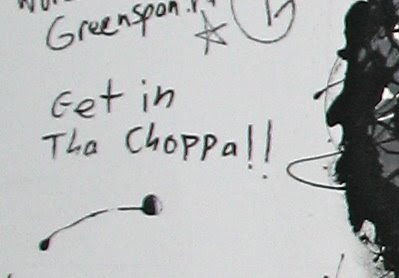 Greenspan
Get in
Tha Choppa!!